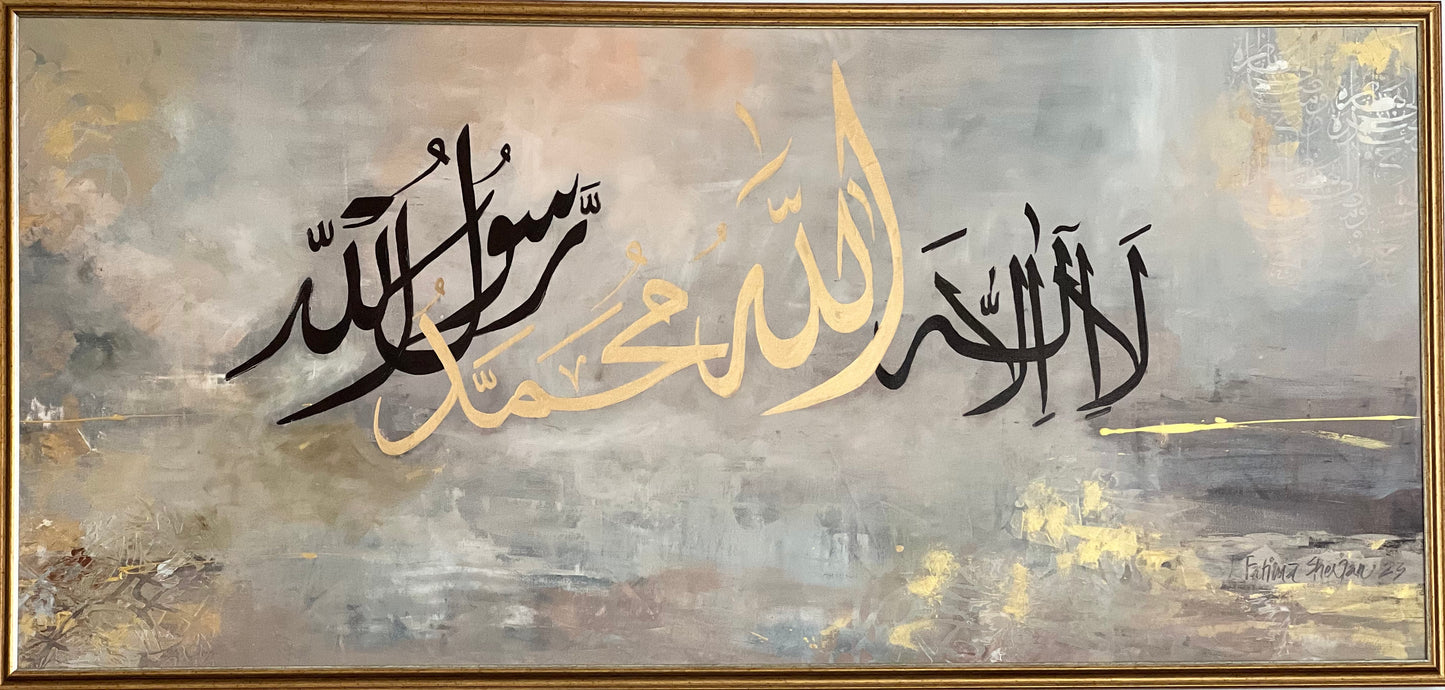 لَا إِلٰهَ إِلَّا اللّٰه مُحَمَّدٌ رَّسُولُ اللّٰه
Fatima Sherjan 23